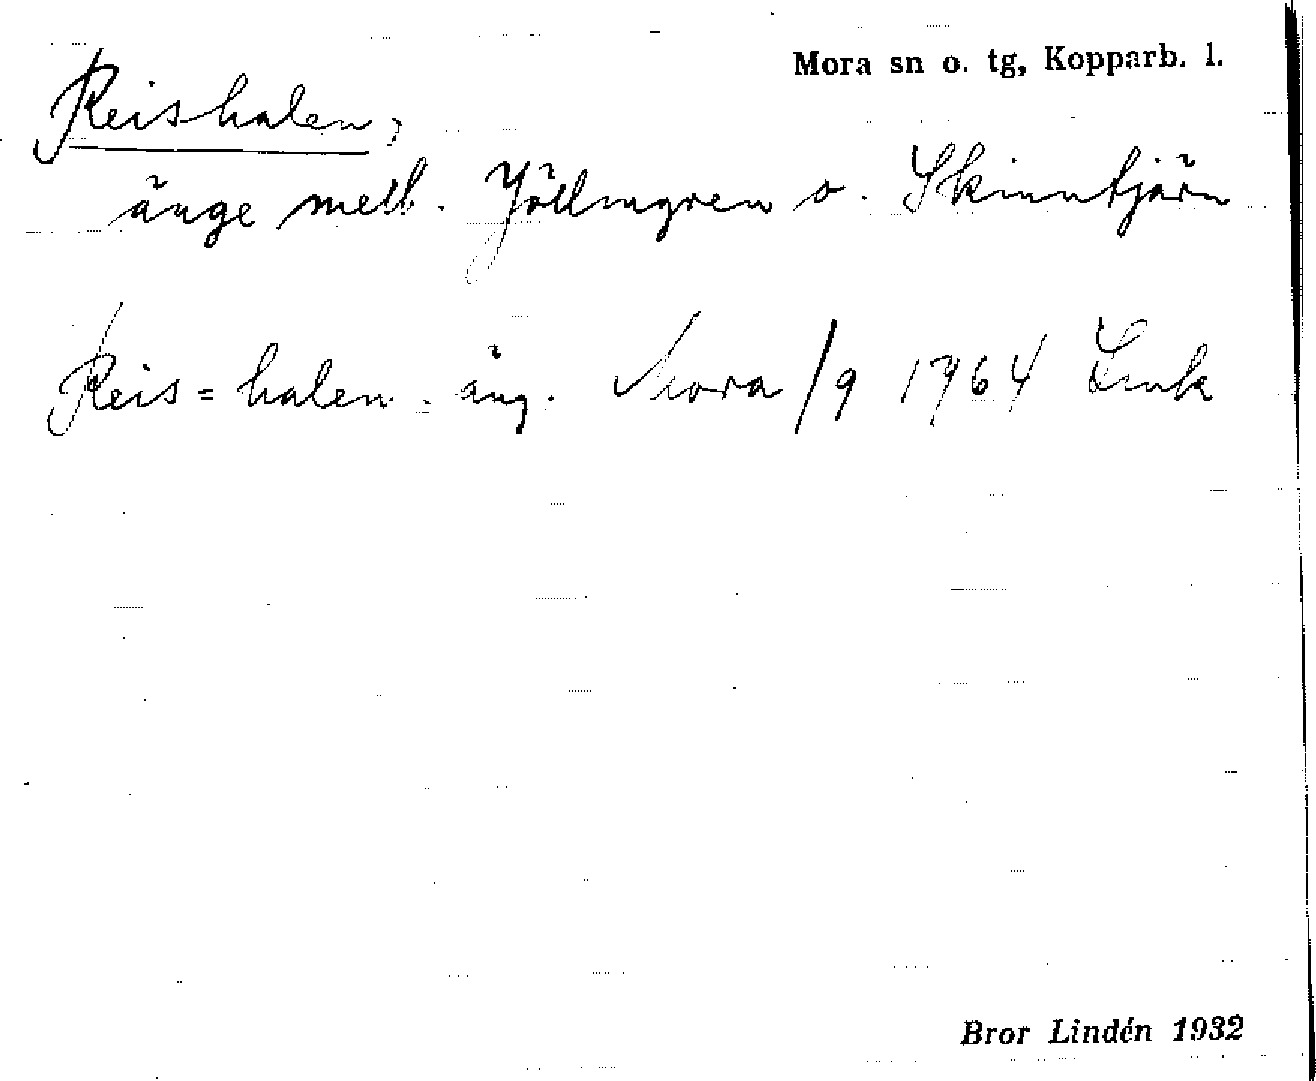 Mora sn o. tg, Kopparb. l.
Reishalen,
änge mell. Jöllmgren o. Skinntjärn
Reis=halen. äng. Mora /9 1964
Bror Lindén 1932